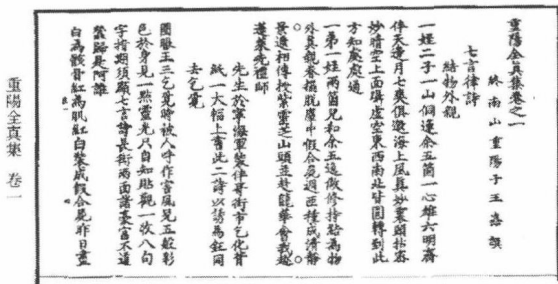 重陽全真集卷之一
終南山重陽子王嚞譔
七言律詩
結物外親
一姪二子一山侗連余五箇一心雄六明齊
伴天邊月七爽俱邀海上風真妙裏頭拈密
妙晴空上面躡虛空東西南北皆圓轉到此
方知處處通
一弟一姪兩箇兒和余五逸做修持結為物
外真親眷擺脫塵中假合屍週匝種成清靜
景遞相傳授紫靈芝山頭並赴龍華會我趁
蓬萊先禮師
先生於寧海軍裝伴哥街市乞化背
紙一大幅上書此二詩以誘馬鈺同
去乞覓
團臉王三乞覓時被人呼作害風兒五般彩
色於身見一點靈光只自知貼觀一枚八句
字搭期須顯七言詩長街兩面諸豪富不道
鸞歸是阿誰
白為骸骨紅為肌紅白裝成假合屍昨日盡
重陽全真集 卷一